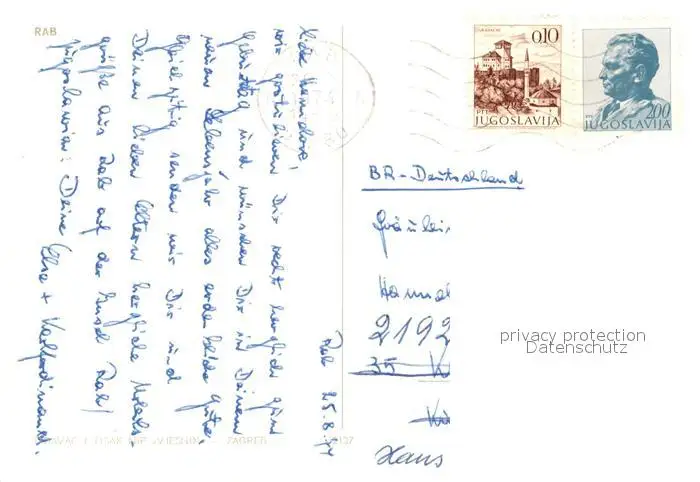 RAB
Rab 25.8.77
Liebe Hannelore,
wir gratulieren Dir recht herzlich zum
Geburtstag und wünschen Dir in Deinem
neuen Lebensjahr alles erdenkliche Gute.
Gleichzeitig senden wir Dir und
Deinen lieben Eltern herzliche Urlaubs-
grüße aus Rab auf der Insel Rab/
Jugoslawien. Deine Elsa + Karlferdinand.
ZAGREB
0.10
JUGOSLAVIJA
2.00
JUGOSLAVIJA
BR-Deutschland
Fräulei
Hannel
2192
35 K
Kö
Hans
privacy protection
Datenschutz